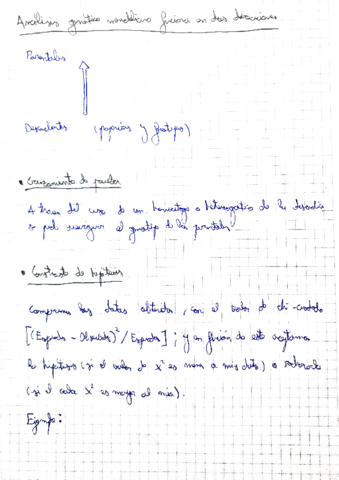 Análisis genético mendeliano funciona en dos direcciones
Parentales
Descendientes (proporciones y fenotipos)
• Cruzamiento de prueba
A través del cruce de un homocigoto o heterogotio de la
se puede el genotipo de los parentales
• Contraste de hipótesis
Comparamos los datos obtenidos, con el valor de chi-cuadrado
[(Esperado - Observado)²/Esperado]; y en función de este aceptamos
la hipótesis (si el valor de X² es menor a mis datos) o rechazada
(si el valor X² es mayor al mía).
Ejemplo: